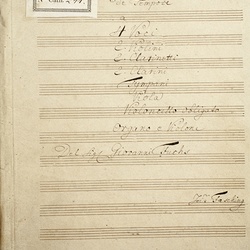 De Tempore
a
4 Voci
2 Violini
2 Clarinetti
2 Clarini
Tympani
Viola
Violoncello obligato
Organo e Violone
Del Sig. Giovanni Fuchs